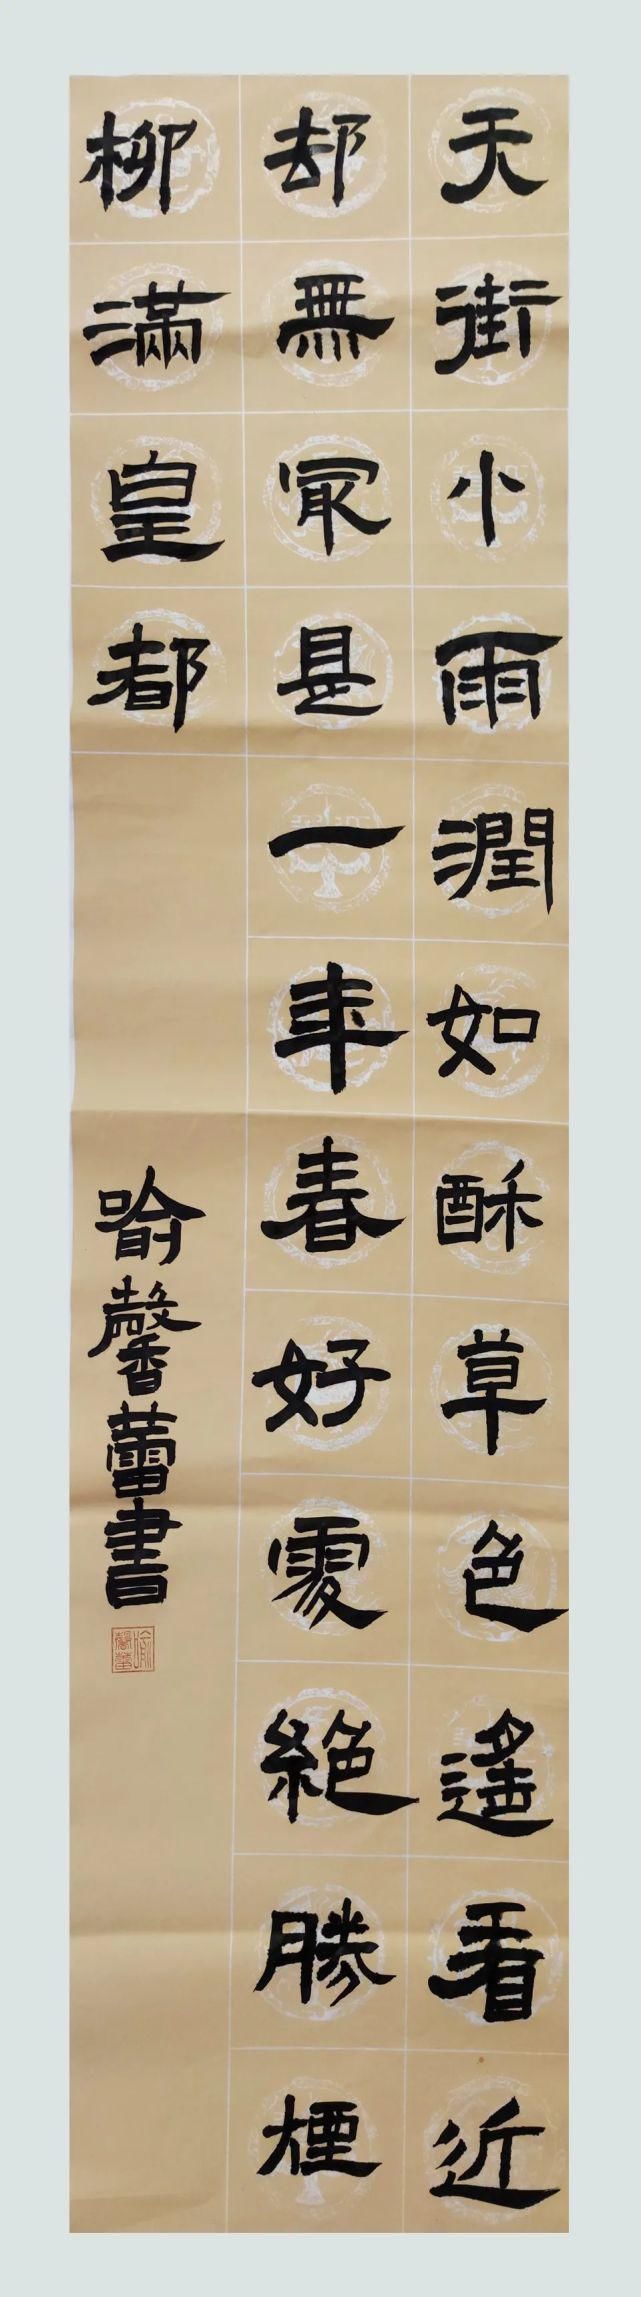 天街小雨潤如酥草色遙看近
却無冣是一年春好處絕勝煙
柳滿皇都
喻馨蕾書
喻馨蕾